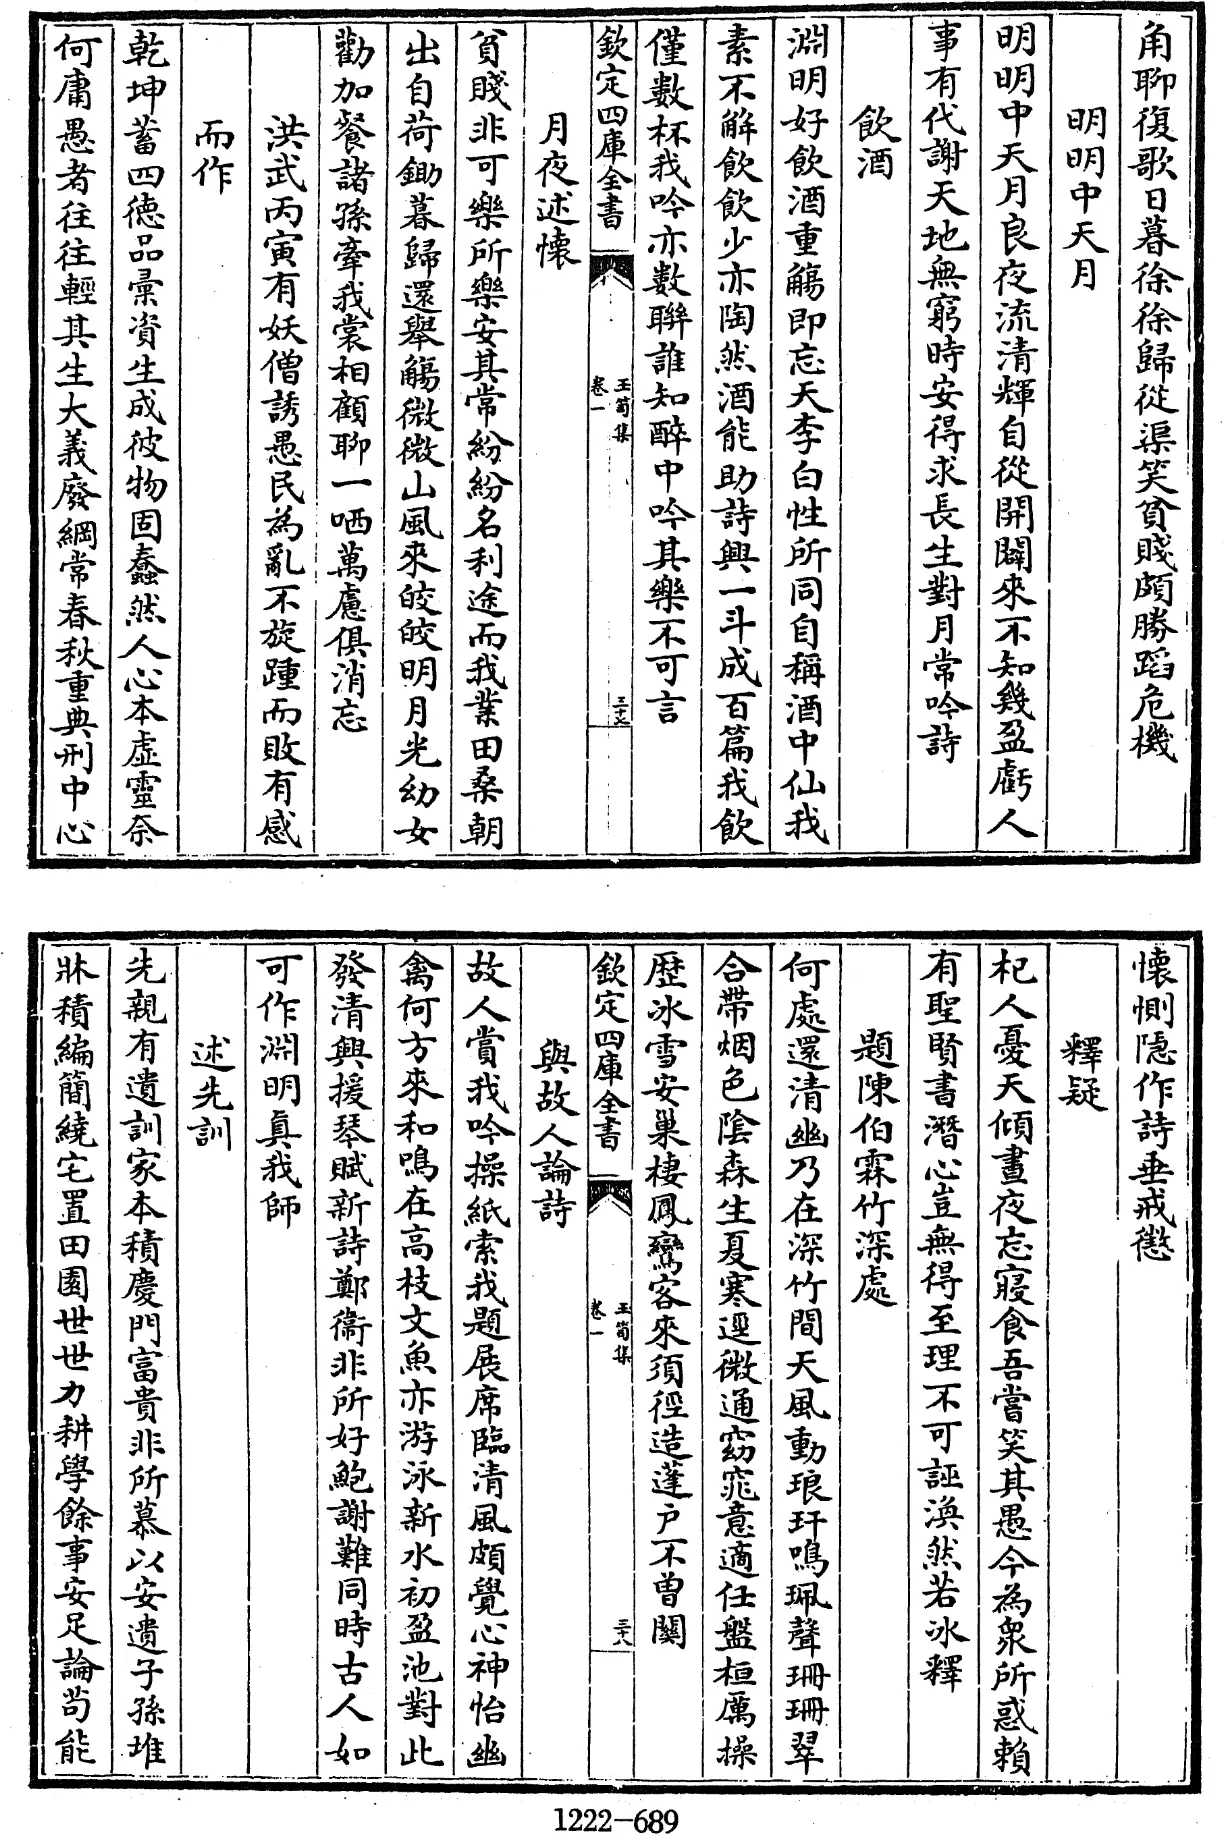 角聊復歌日暮徐徐歸從渠笑貧賤頗勝蹈危機
明明中天月
明明中天月良夜流清輝自從開闢來不知幾盈虧人
事有代謝天地無窮時安得求長生對月常吟詩
飲酒
淵明好飲酒重觴即忘天李白性所同自稱酒中仙我
素不解飲飲少亦陶然酒能助詩興一斗成百篇我飲
僅數杯我吟亦數聯誰知醉中吟其樂不可言
欽定四庫全書
玉笥集
卷一
三十七
月夜述懷
貧賤非可樂所樂安其常紛紛名利途而我業田桑朝
出自荷鋤暮歸還舉觴微微山風來皎皎明月光幼女
勸加餐諸孫牽我裳相顧聊一哂萬慮俱消忘
洪武丙寅有妖僧誘愚民為亂不旋踵而敗有感
而作
乾坤蓄四德品彚資生成彼物固蠢然人心本虛靈奈
何庸愚者往往輕其生大義廢綱常春秋重典刑中心
懷惻隱作詩垂戒懲
釋疑
杞人憂天傾晝夜忘寢食吾嘗笑其愚今為衆所惑賴
有聖賢書潛心豈無得至理不可誣渙然若冰釋
題陳伯霖竹深處
何處還清幽乃在深竹間天風動琅玕鳴珮聲珊珊翠
合帶烟色陰森生夏寒逕微通窈窕意適任盤桓厲操
歷冰雪安巢棲鳳鸞客來須徑造蓬户不曾關
欽定四庫全書
玉笥集
卷一
三十八
與故人論詩
故人賞我吟操紙索我題展席臨清風頗覺心神怡幽
禽何方來和鳴在高枝文魚亦游泳新水初盈池對此
發清興援琴賦新詩鄭衞非所好鮑謝難同時古人如
可作淵明真我師
述先訓
先親有遺訓家本積慶門富貴非所慕以安遺子孫堆
牀積編簡繞宅置田園世世力耕學餘事安足論茍能
1222-689